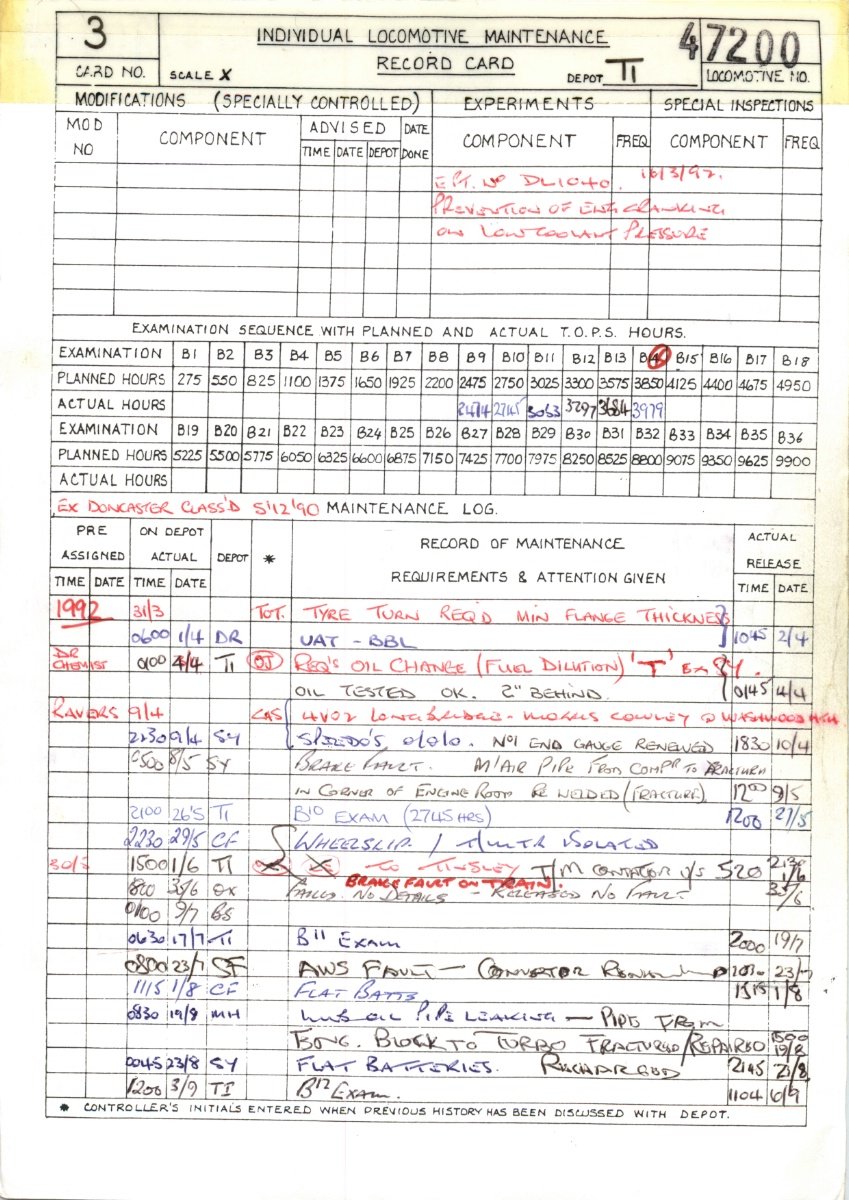 3 INDIVIDUAL LOCOMOTIVE MAINTENANCE 47200
CARD NO. SCALE X RECORD CARD DEPOT TI LOCOMOTIVE NO.
MODIFICATIONS (SPECIALLY CONTROLLED) EXPERIMENTS SPECIAL INSPECTIONS
MOD NO COMPONENT ADVISED DATE DONE COMPONENT FREQ COMPONENT FREQ
TIME DATE DEPOT
EPT. Nº DL1040. 16/3/92.
PREVENTION OF ENG CRANKING
ON LOW COOLANT PRESSURE
EXAMINATION SEQUENCE WITH PLANNED AND ACTUAL T.O.P.S. HOURS.
EXAMINATION B1 B2 B3 B4 B5 B6 B7 B8 B9 B10 B11 B12 B13 B14 B15 B16 B17 B18
PLANNED HOURS 275 550 825 1100 1375 1650 1925 2200 2475 2750 3025 3300 3575 3850 4125 4400 4675 4950
ACTUAL HOURS 2474 2745 3063 3297 3684 3979
EXAMINATION B19 B20 B21 B22 B23 B24 B25 B26 B27 B28 B29 B30 B31 B32 B33 B34 B35 B36
PLANNED HOURS 5225 5500 5775 6050 6325 6600 6875 7150 7425 7700 7975 8250 8525 8800 9075 9350 9625 9900
ACTUAL HOURS
EX DONCASTER CLASS'D 5'12'90 MAINTENANCE LOG.
PRE ASSIGNED ON DEPOT ACTUAL DEPOT * RECORD OF MAINTENANCE ACTUAL RELEASE
TIME DATE TIME DATE REQUIREMENTS & ATTENTION GIVEN TIME DATE
1992 31/3 TGT. TYRE TURN REQ'D MIN FLANGE THICKNESS
0600 1/4 DR UAT - BBL 1045 2/4
DR CHEMIST 0100 4/4 TI OJ REQ'S OIL CHANGE (FUEL DILUTION) 'T' EX SY.
OIL TESTED OK. 2" BEHIND. 0145 4/4
RAVERS 9/4 CAS 4V02 LONGBRIDGE - MORRIS COWLEY @ WASHWOOD HTH
2230 9/4 SY SPEEDO'S 0/0/0. Nº1 END GAUGE RENEWED 1830 10/4
0500 8/5 SY BRAKE FAULT. M'AIR PIPE FROM COMPR TO FRACTURED
IN CORNER OF ENGINE ROOM RE WELDED (FRACTURE). 1200 9/5
2100 26'5 TI B10 EXAM (2745 HRS) 1200 27/5
2230 29/5 CF WHEELSLIP / T/MTR ISOLATED
30/5 1500 1/6 TI TO TINSLEY T/M CONTACTOR U/S S20 2130 1/6
BRAKE FAULT ON TRAIN.
OX FAILS. NO DETAILS - RELEASED NO FAULT
0100 3/7 BS
0630 17/7 TI B11 EXAM 2000 19/7
0800 23/7 SF AWS FAULT - CONVERTOR 1030 23/7
1115 1/8 CF FLAT BATTS 1515 1/8
0830 19/8 MH LUB OIL PIPE LEAKING - PIPE FROM
ENG. BLOCK TO TURBO FRACTURED/REPAIRED 1500 19/8
0045 23/8 SY FLAT BATTERIES. RECHARGED 2145 23/8
1200 3/9 TI B12 EXAM. 1104 6/9
* CONTROLLER'S INITIALS ENTERED WHEN PREVIOUS HISTORY HAS BEEN DISCUSSED WITH DEPOT.